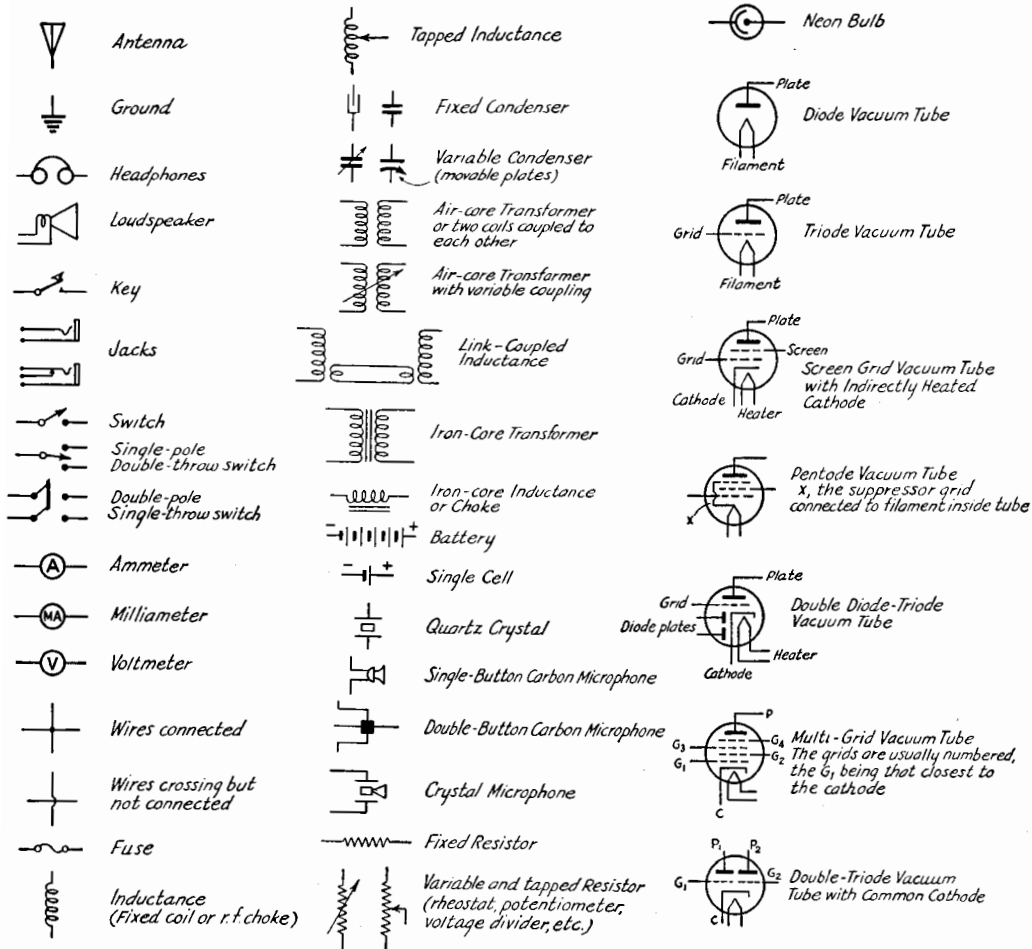 Antenna
Ground
Headphones
Loudspeaker
Key
Jacks
Switch
Single-pole
Double-throw switch
Double-pole
Single-throw switch
A
Ammeter
MA
Milliameter
V
Voltmeter
Wires connected
Wires crossing but
not connected
Fuse
Inductance
(Fixed coil or r.f. choke)
Tapped Inductance
Fixed Condenser
Variable Condenser
(movable plates)
Air-core Transformer
or two coils coupled to
each other
Air-core Transformer
with variable coupling
Link-Coupled
Inductance
Iron-Core Transformer
Iron-core Inductance
or Choke
- +
Battery
- +
Single Cell
Quartz Crystal
Single-Button Carbon Microphone
Double-Button Carbon Microphone
Crystal Microphone
Fixed Resistor
Variable and tapped Resistor
(rheostat, potentiometer,
voltage divider, etc.)
Neon Bulb
Plate
Diode Vacuum Tube
Filament
Plate
Grid
Triode Vacuum Tube
Filament
Plate
Screen
Grid
Screen Grid Vacuum Tube
with Indirectly Heated
Cathode
Cathode
Heater
Pentode Vacuum Tube
X, the suppressor grid
connected to filament inside tube
X
Plate
Grid
Double Diode-Triode
Vacuum Tube
Diode plates
Heater
Cathode
P
G4
Multi-Grid Vacuum Tube
G3
G2
The grids are usually numbered,
G1
the G1 being that closest to
the cathode
C
P1 P2
G1
G2
Double-Triode Vacuum
Tube with Common Cathode
C